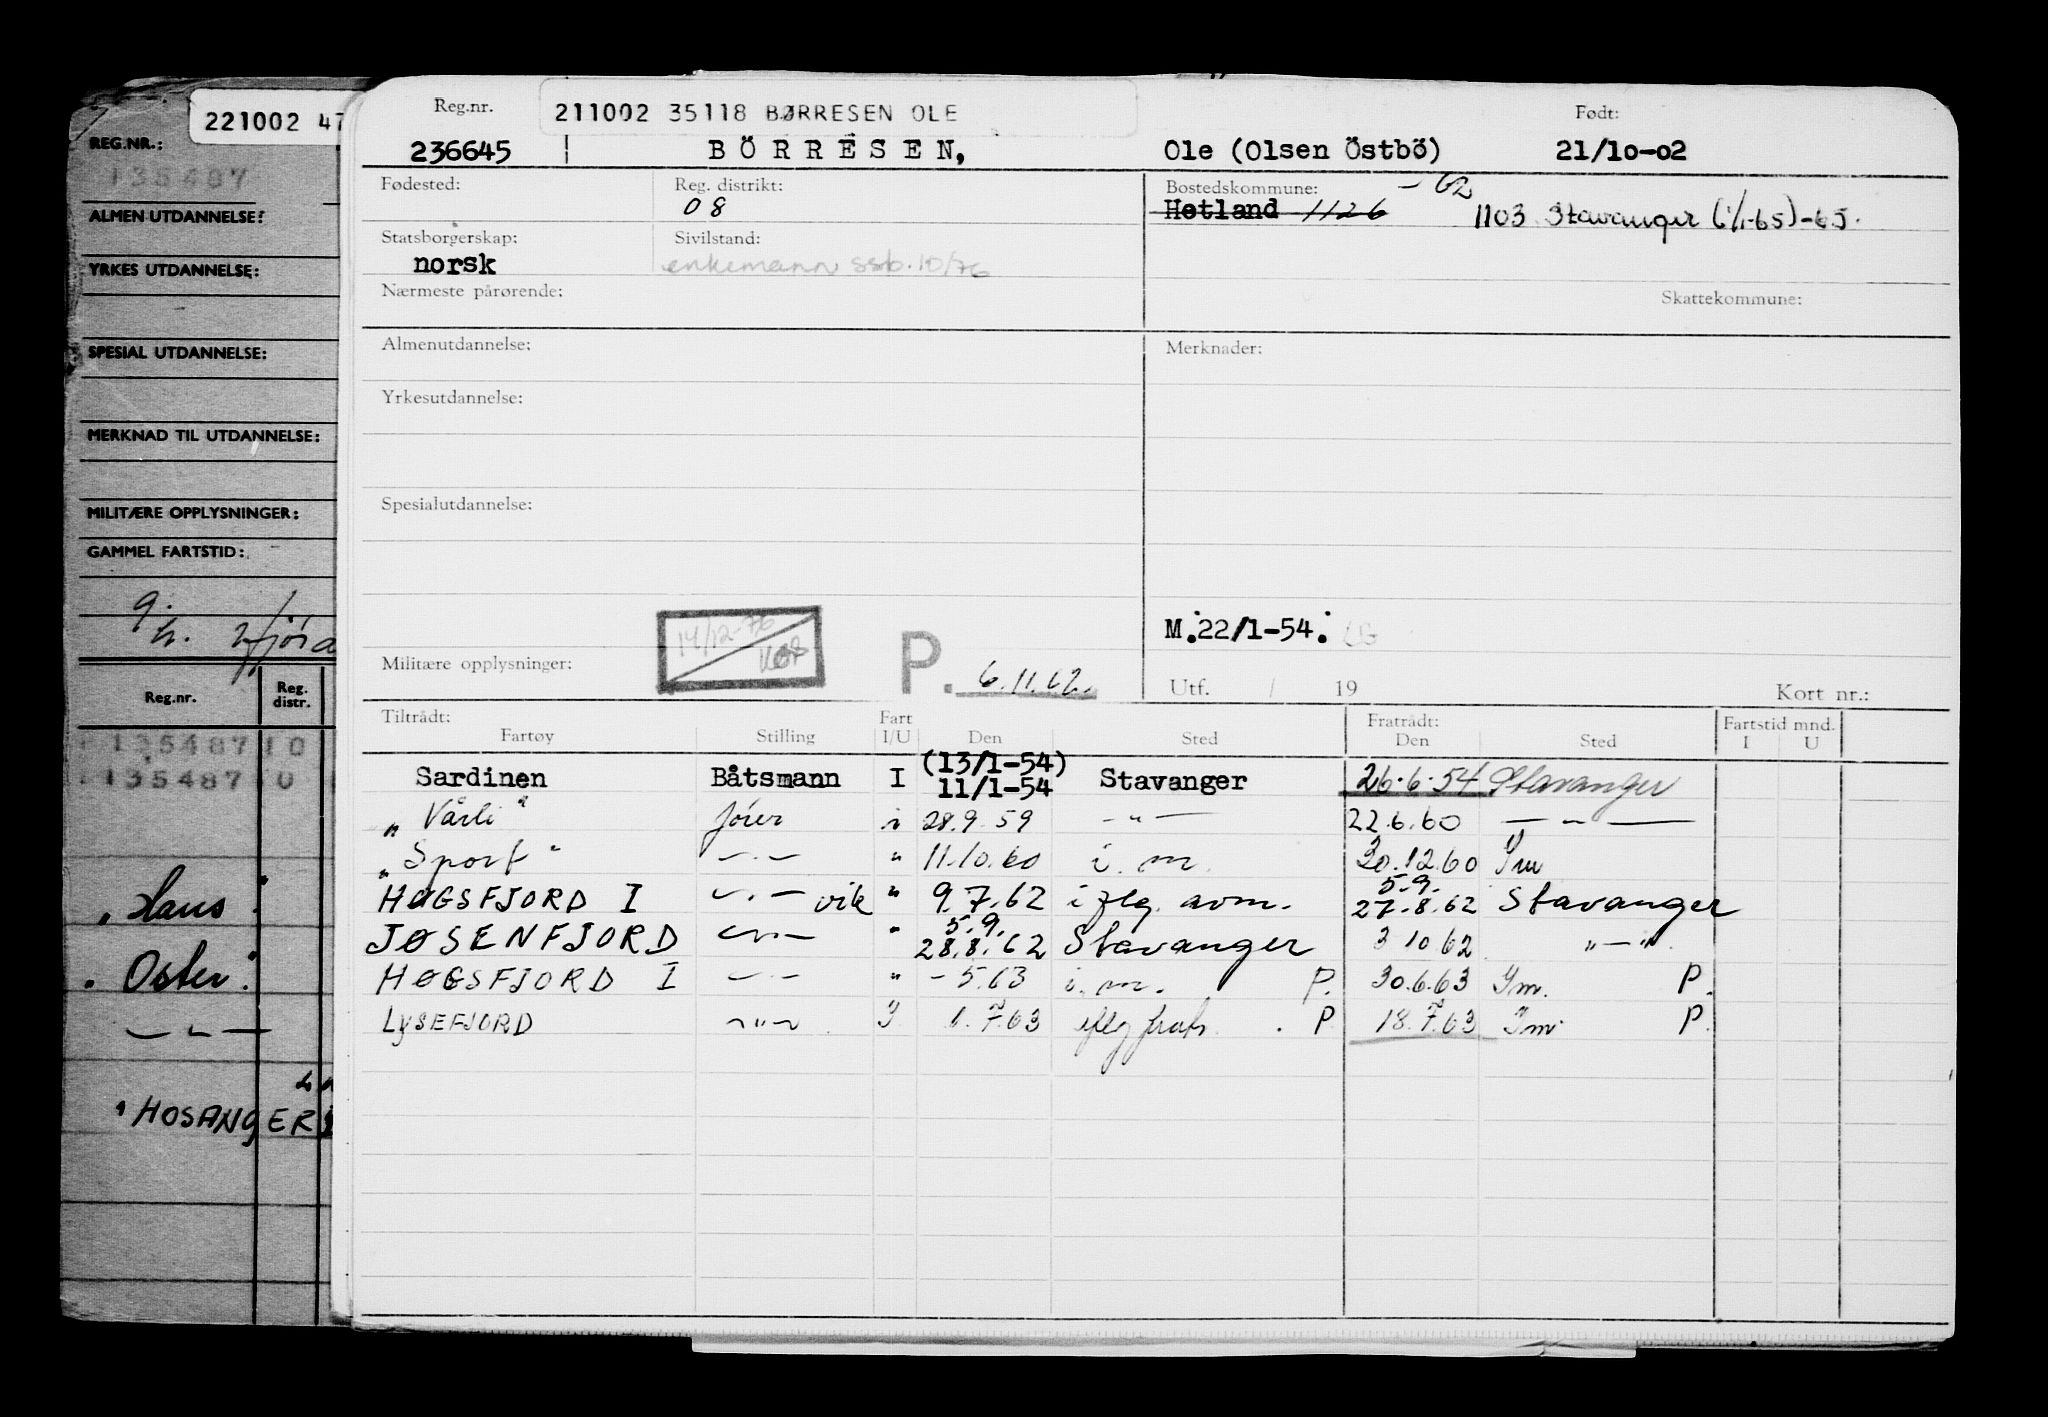 221002 47
REG.NR.:
135487
ALMEN UTDANNELSE:
YRKES UTDANNELSE:
SPESIAL UTDANNELSE:
MERKNAD TIL UTDANNELSE:
MILITÆRE OPPLYSNINGER:
GAMMEL FARTSTID:
Reg.nr. Reg. distr.
135487 10
135487 0
„Haus"
„Oster"
— „ —
"HOSANGER
Reg.nr. 211002 35118 BØRRESEN OLE Født:
236645 BÖRRESEN, Ole (Olsen Östbö) 21/10-02
Fødested: Reg. distrikt: Bostedskommune: - 62
08 Hetland 1126 1103 Stavanger (1/1-65)-65.
Statsborgerskap: Sivilstand:
norsk enkemann ssb. 10/76
Nærmeste pårørende: Skattekommune:
Almenutdannelse: Merknader:
Yrkesutdannelse:
Spesialutdannelse:
14/12-76
M.22/1-54.
Militære opplysninger: P. 6.11.62. Utf. / 19 Kort nr.:
Tiltrådt: Fart Fratrådt: Fartstid mnd.
Fartøy Stilling I/U Den Sted Den Sted I U
(13/1-54)
Sardinen Båtsmann I 11/1-54 Stavanger 26.6.54 Stavanger
„Vårli" fører i 28.9.59 — „ — 22.6.60 — „ —
„Sport" — „ — " 11.10.60 i. m. 30.12.60 Im
5.9.
HØGSFJORD I — „ — vik " 9.7.62 iflg. avm. 27.8.62 Stavanger
5.9.
JØSENFJORD — „ — " 28.8.62 Stavanger 3 10 62 " — "
HØGSFJORD I — „ — " - 5.63 i. m. P. 30.6.63 Im. P.
LYSEFJORD — „ — I 1.7.63 iflg P 18.7.63 Im P.